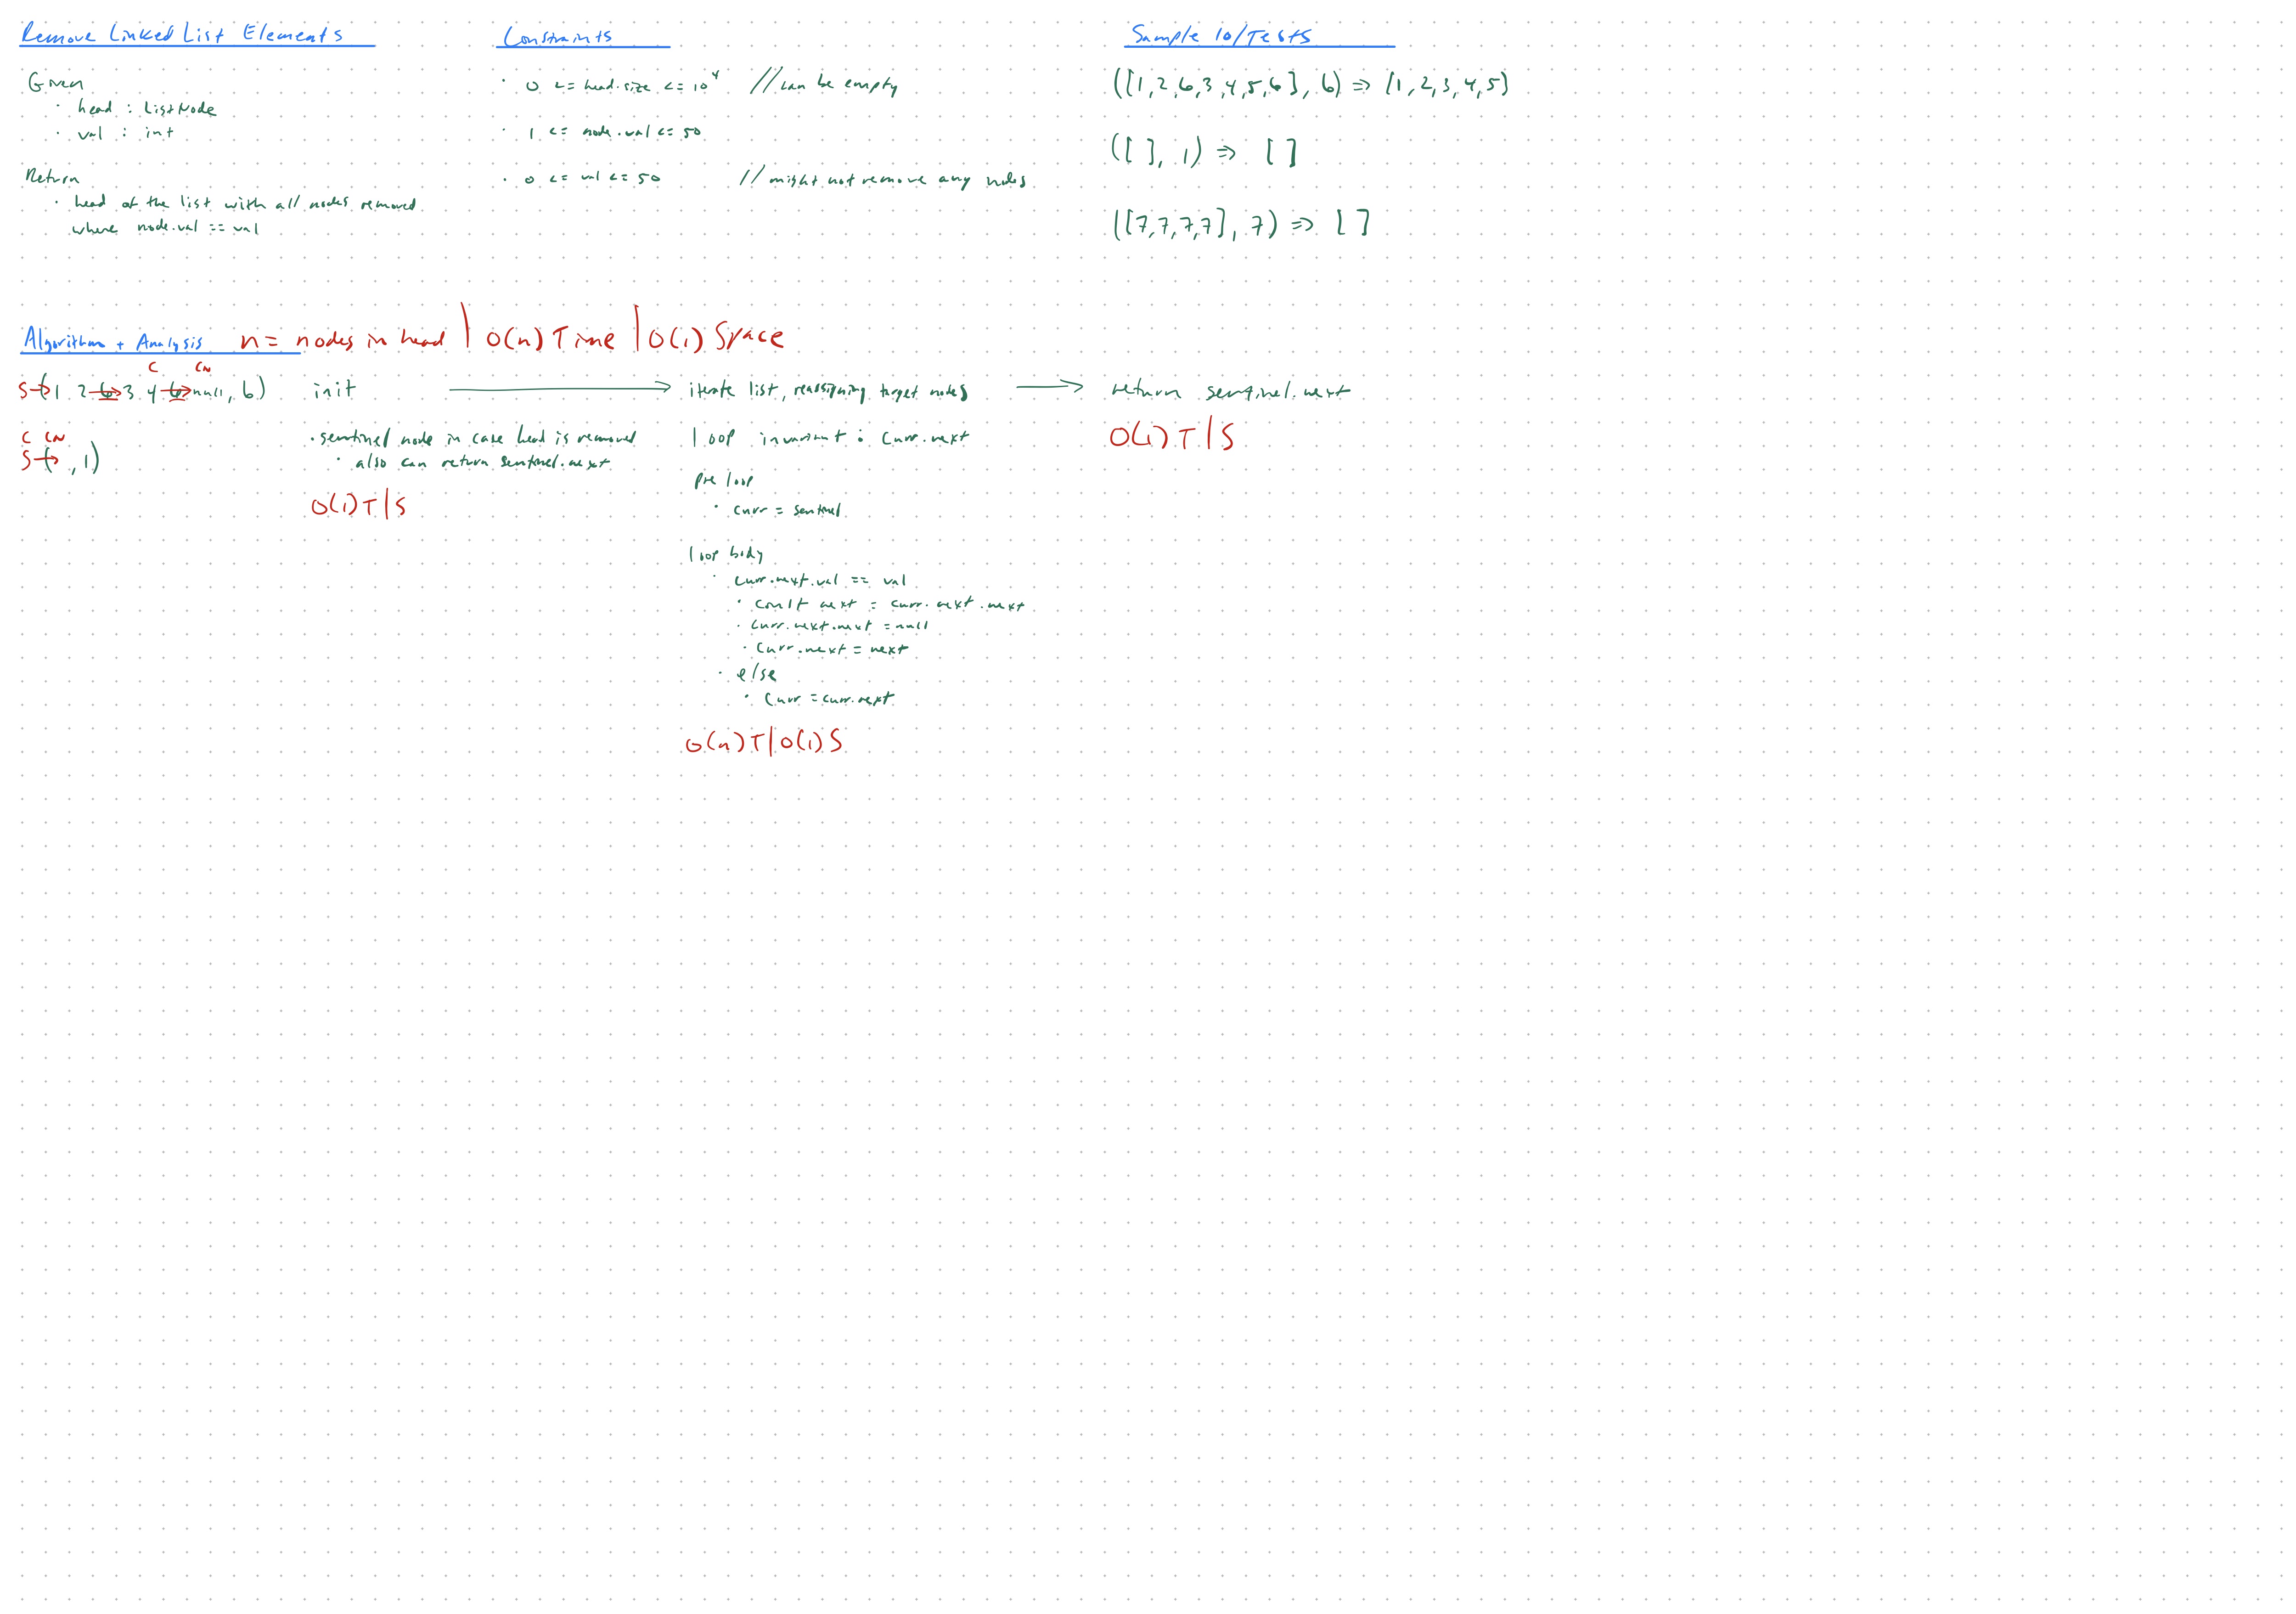 Remove Linked List Elements
Given
· head : ListNode
· val : int
Return
· head of the list with all nodes removed
where node.val == val
Constraints
· 0 <= head.size <= 10^4 // can be empty
· 1 <= node.val <= 50
· 0 <= val <= 50 // might not remove any nodes
Sample IO/Tests
([1,2,6,3,4,5,6], 6) => [1,2,3,4,5]
([ ], 1) => [ ]
([7,7,7,7], 7) => [ ]
Algorithm + Analysis n = nodes in head | O(n) Time | O(1) Space
C CN
S→(1 2 6→3 4 6→null, 6)
C CN
S→( , 1)
init
· sentinel node in case head is removed
· also can return sentinel.next
O(1) T|S
iterate list, reassigning target nodes
loop invariant : curr.next
pre loop
· curr = sentinel
loop body
· curr.next.val == val
· const next = curr.next.next
· curr.next.next = null
· curr.next = next
· else
· curr = curr.next
O(n) T|O(1) S
return sentinel.next
O(1) T|S